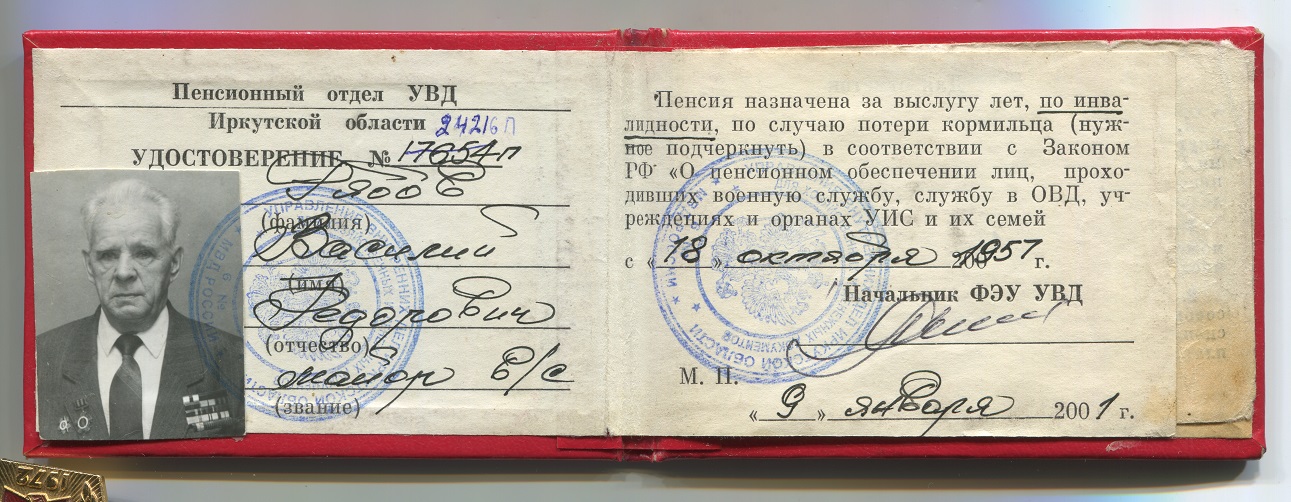 Пенсионный отдел УВД
Иркутской области 24216П
УДОСТОВЕРЕНИЕ № 17654п
Рябов
(фамилия)
Василий
(имя)
Федорович
(отчество)
майор в/с
(звание)
Пенсия назначена за выслугу лет, по инва-
лидности, по случаю потери кормильца (нуж-
ное подчеркнуть) в соответствии с Законом
РФ «О пенсионном обеспечении лиц, прохо-
дивших военную службу, службу в ОВД, уч-
реждениях и органах УИС и их семей
с «18» октября 1957 г.
Начальник ФЭУ УВД
М. П.
«9» января 2001 г.
1972